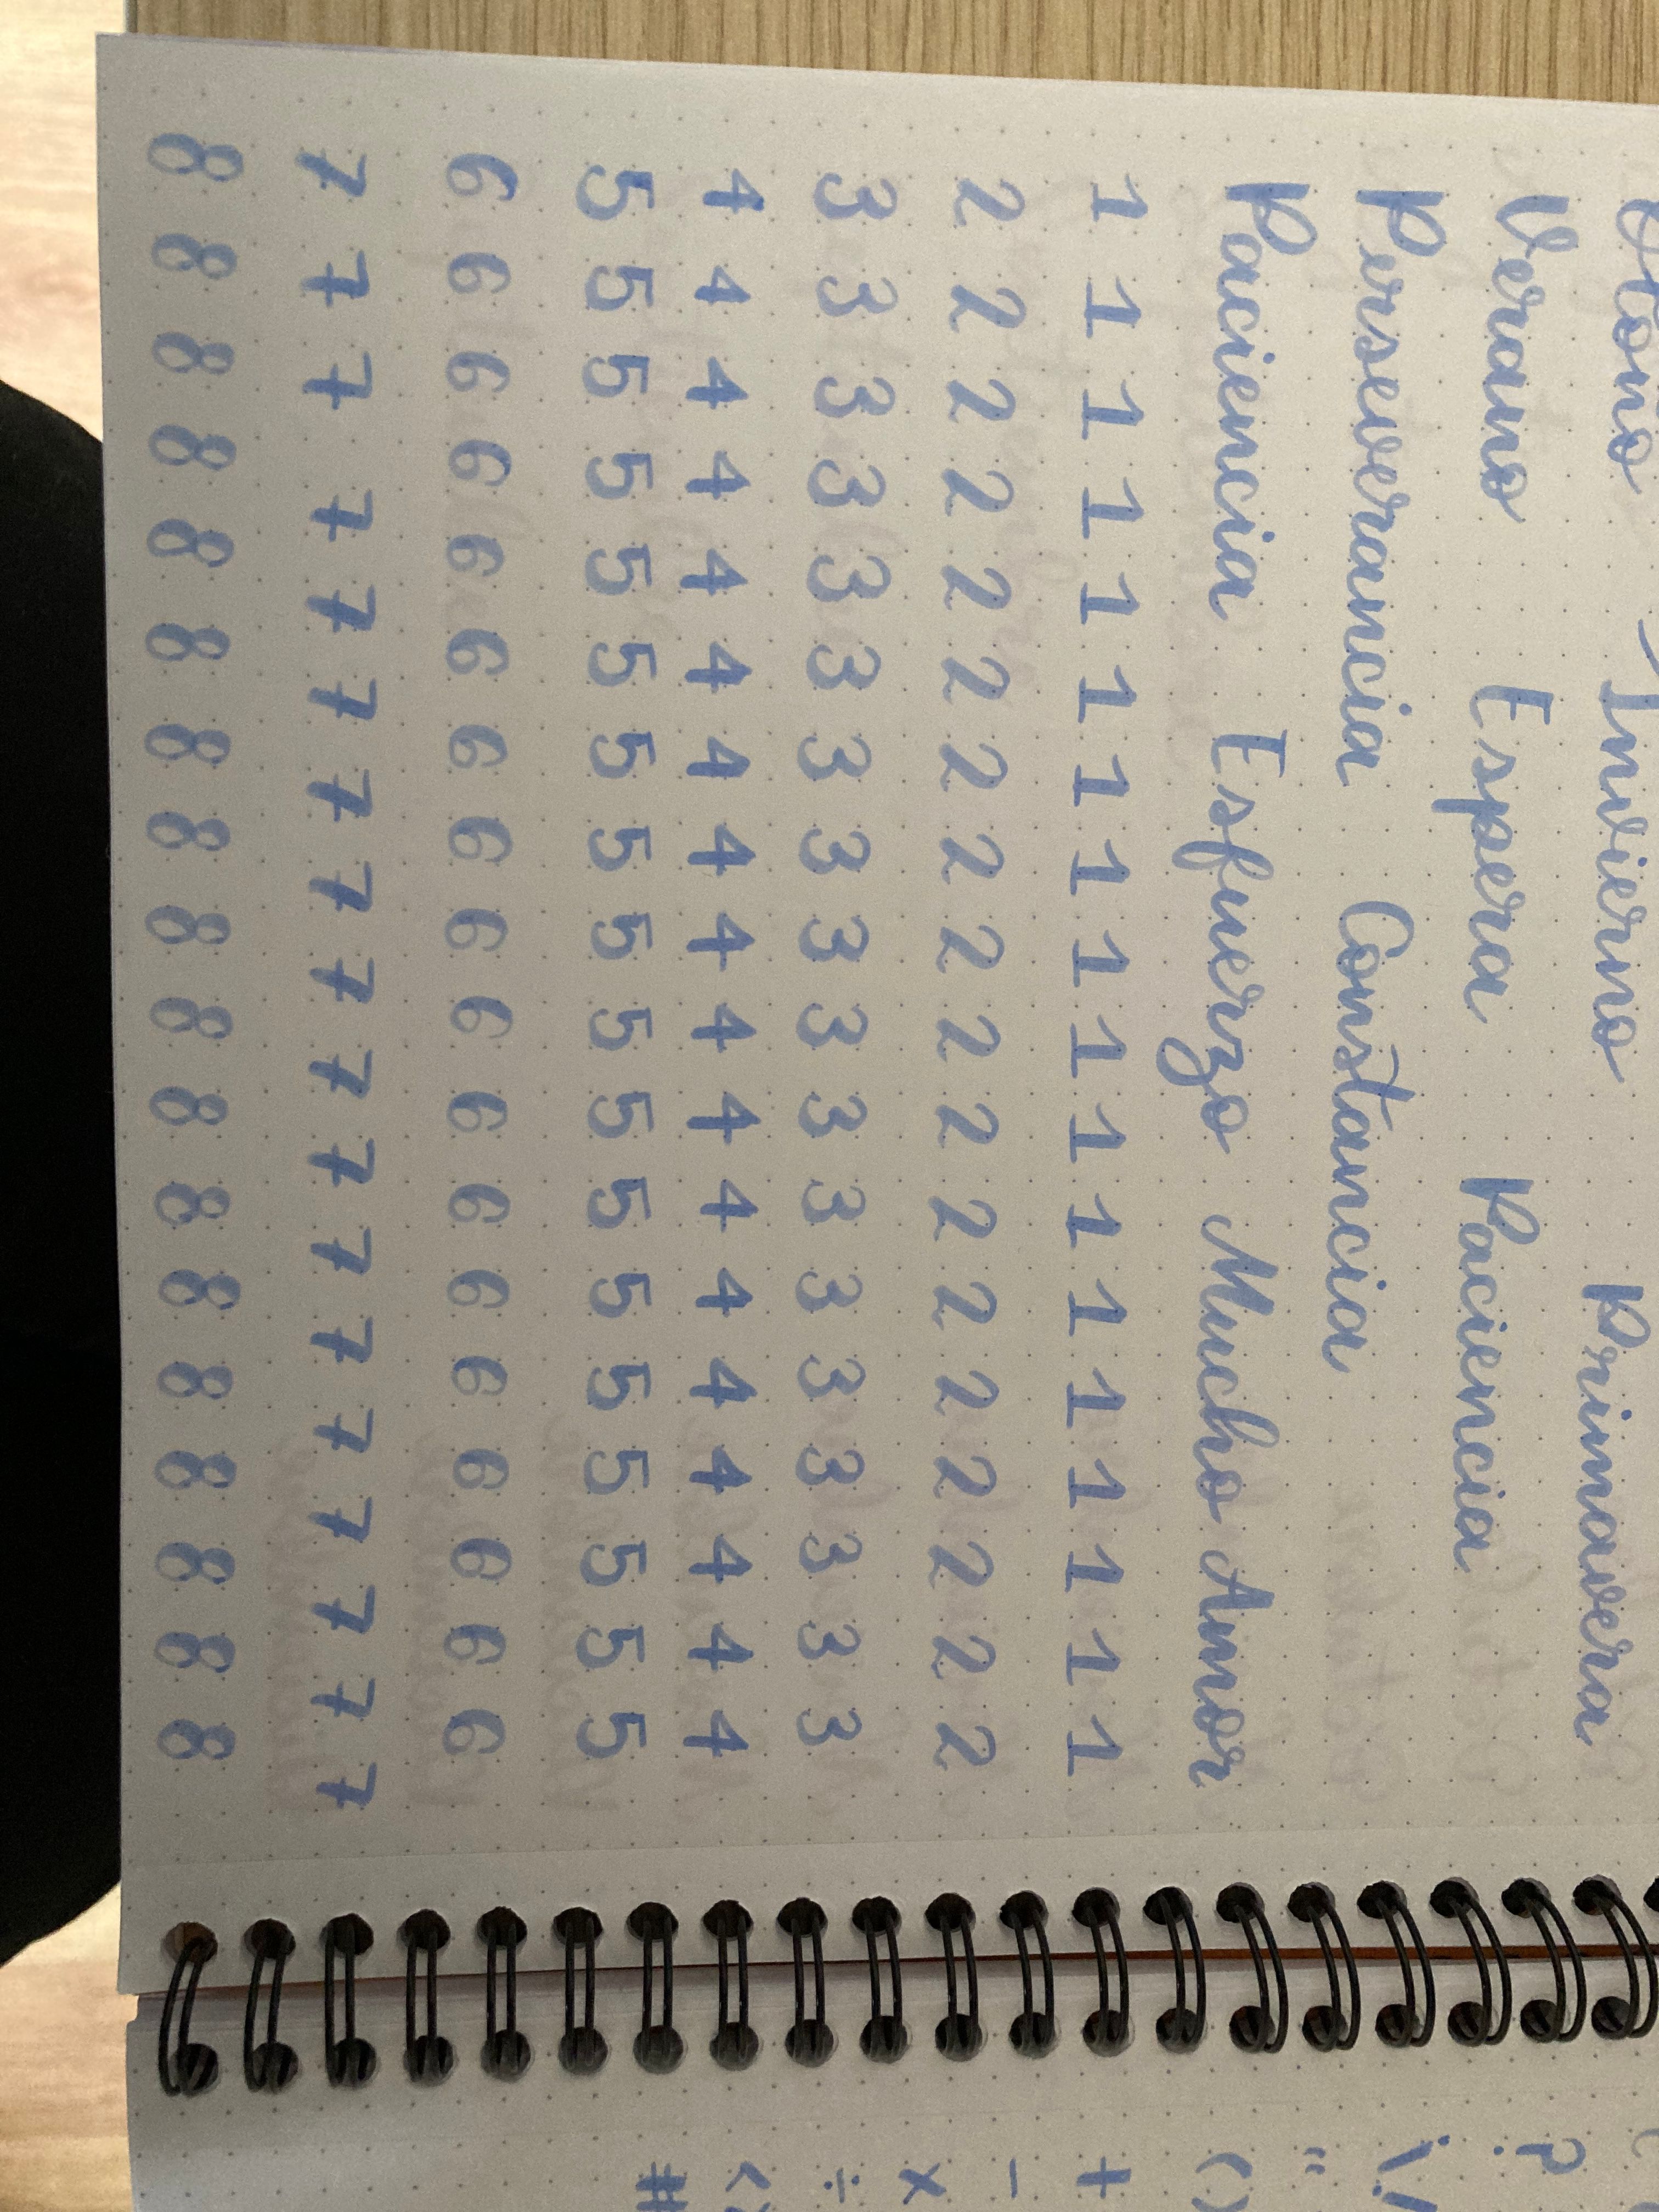 Otoño Invierno Primavera
Verano Espera Paciencia
Perseverancia Constancia
Paciencia Esfuerzo Mucho Amor
1 1 1 1 1 1 1 1 1 1 1 1 1 1 1 1 1 1
2 2 2 2 2 2 2 2 2 2 2 2 2 2 2 2 2 2
3 3 3 3 3 3 3 3 3 3 3 3 3 3 3 3 3 3
4 4 4 4 4 4 4 4 4 4 4 4 4 4 4 4 4 4
5 5 5 5 5 5 5 5 5 5 5 5 5 5 5 5 5 5
6 6 6 6 6 6 6 6 6 6 6 6 6 6 6 6 6 6
7 7 7 7 7 7 7 7 7 7 7 7 7 7 7 7 7 7
8 8 8 8 8 8 8 8 8 8 8 8 8 8 8 8 8 8
?
"
()
+
-
×
÷
<
#